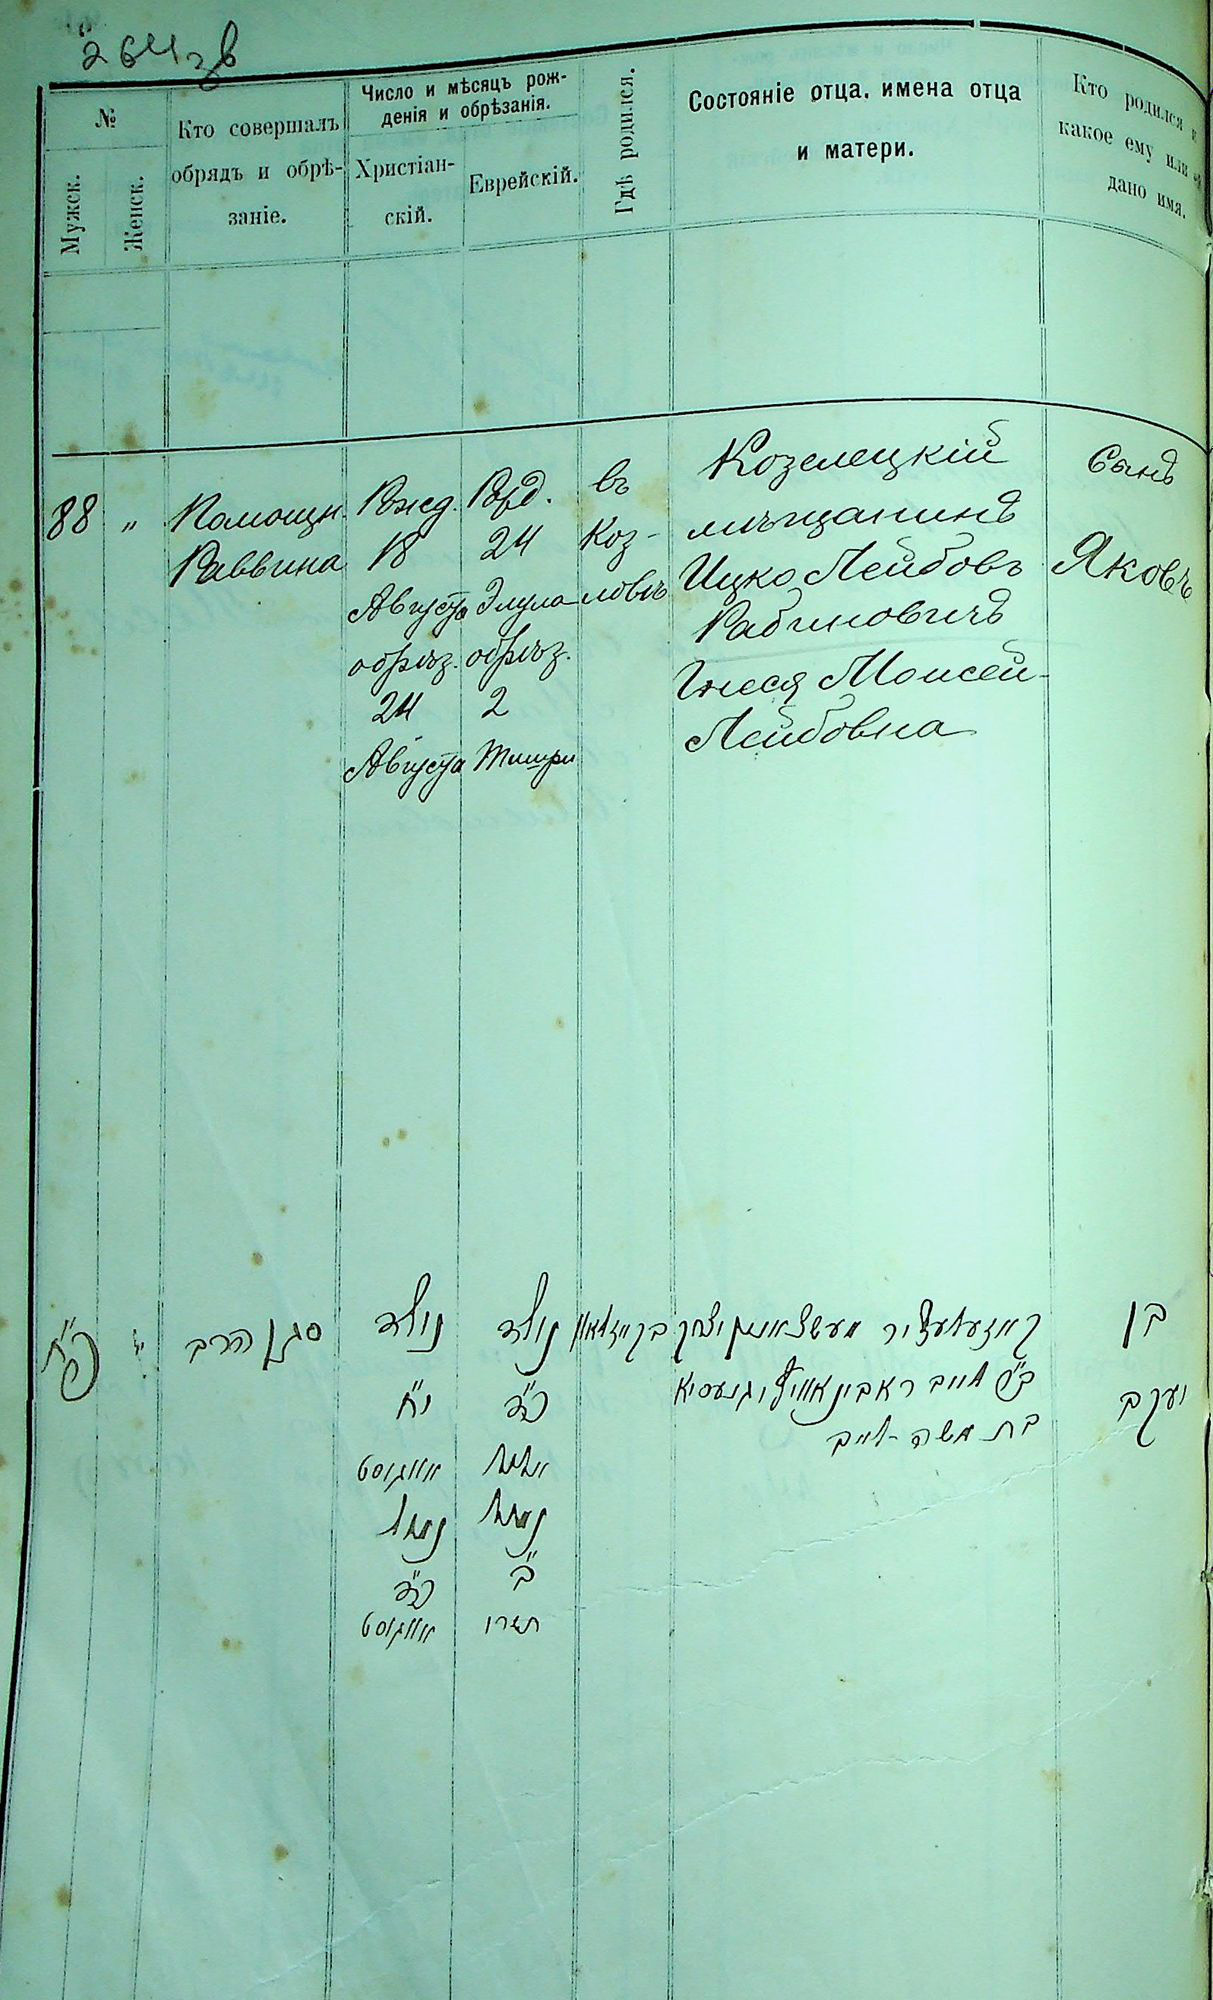 264 зв
№
Мужск.
Женск.
Кто совершалъ
обрядъ и обрѣ-
заніе.
Число и мѣсяцъ рож-
денія и обрѣзанія.
Христіан-
скій.
Еврейскій.
Гдѣ родился.
Состояніе отца, имена отца
и матери.
Кто родился и
какое ему или ей
дано имя.
88
"
Помощн.
Раввина
Рожд.
18
Августа
обрѣз.
24
Августа
24
Элула
обрѣз.
2
Тишри
въ
Коз-
ловѣ
Козелецкій
мѣщанинъ
Ицко Лейбовъ
Рабиновичъ
Гнеся Моисей-
Лейбовна
Сынъ
Яковъ
פ״ח
"
סגן הרב
נולד
י״ח
אווגוסט
נמול
כ״ד
אווגוסט
נולד
כ״ד
אלול
נמול
ב׳
תשרי
ב״ר לייב ראבינאוויץ וגנעסיא
בת משה-לייב
בן
יעקב